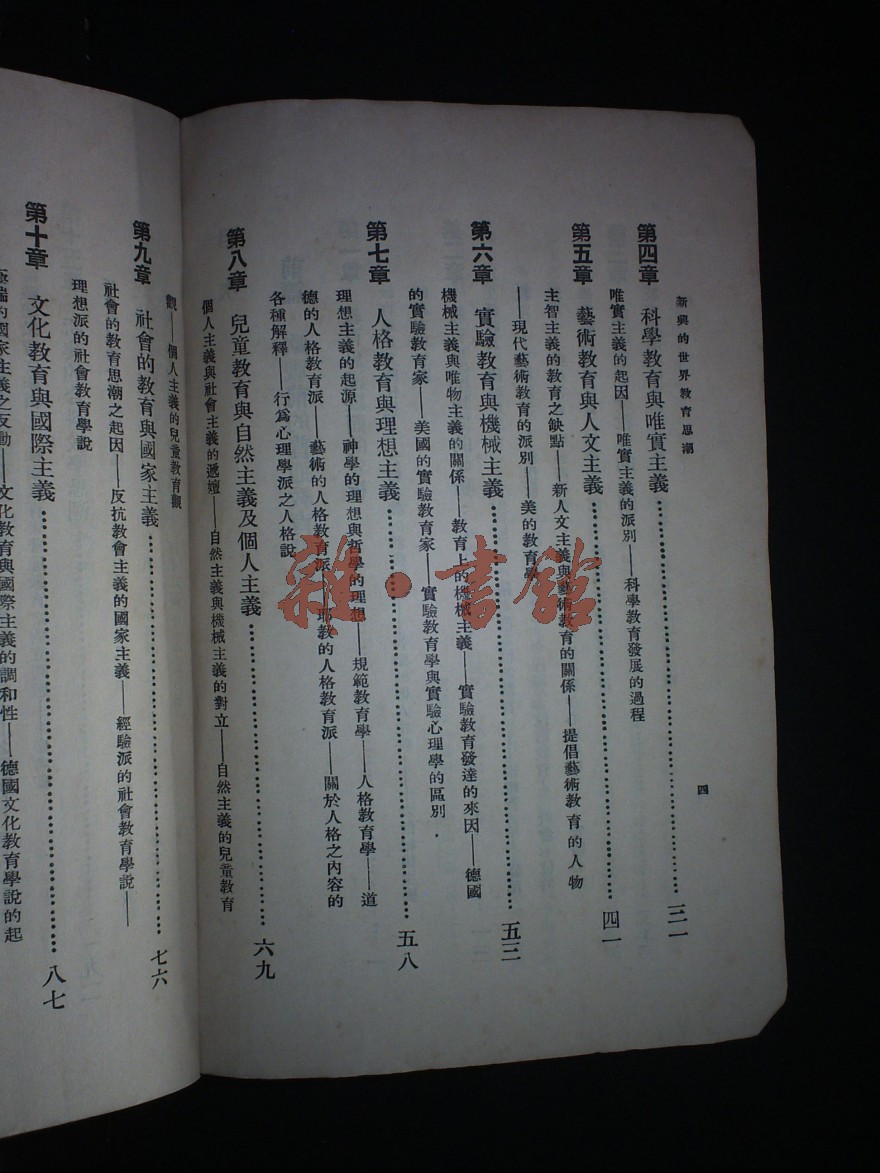 新興的世界教育思潮
四
第四章 科學教育與唯實主義……三一
唯實主義的起因——唯實主義的派別——科學教育發展的過程
第五章 藝術教育與人文主義……四一
主智主義的教育之缺點——新人文主義與藝術教育的關係——提倡藝術教育的人物
——現代藝術教育的派別——美的教育學
第六章 實驗教育與機械主義……五三
機械主義與唯物主義的關係——教育上的機械主義——實驗教育發達的來因——德國
的實驗教育家——美國的實驗教育家——實驗教育學與實驗心理學的區別
第七章 人格教育與理想主義……五八
理想主義的起源——神學的理想與哲學的理想——規範教育學——人格教育學——道
德的人格教育派——藝術的人格教育派——耶教的人格教育派——關於人格之內容的
各種解釋——行爲心理學派之人格說
第八章 兒童教育與自然主義及個人主義……六九
個人主義與社會主義的遞嬗——自然主義與機械主義的對立——自然主義的兒童教育
觀——個人主義的兒童教育觀
第九章 社會的教育與國家主義……七六
社會的教育思潮之起因——反抗教會主義的國家主義——經驗派的社會教育學說——
理想派的社會教育學說
第十章 文化教育與國際主義……八七
極端的國家主義之反動——文化教育與國際主義的調和性——德國文化教育學說的起
雜·書館